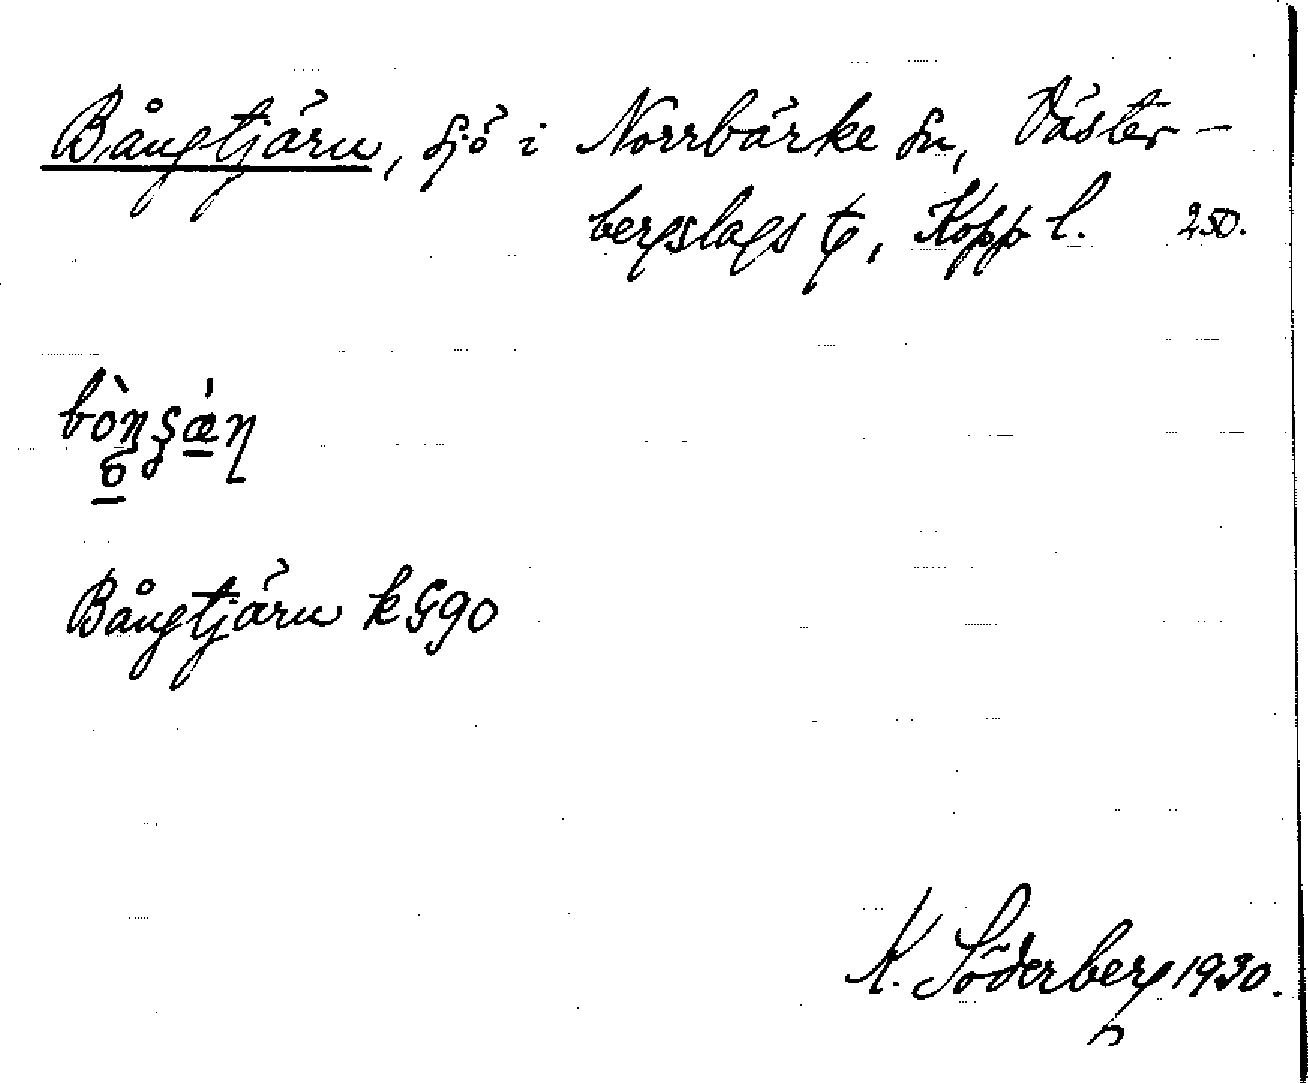 Bångtjärn, sjö i Norrbärke sn, Väster-
bergslags tg, Kopp l. 250.
Bångtjärn k G90
K. Söderberg 1930.